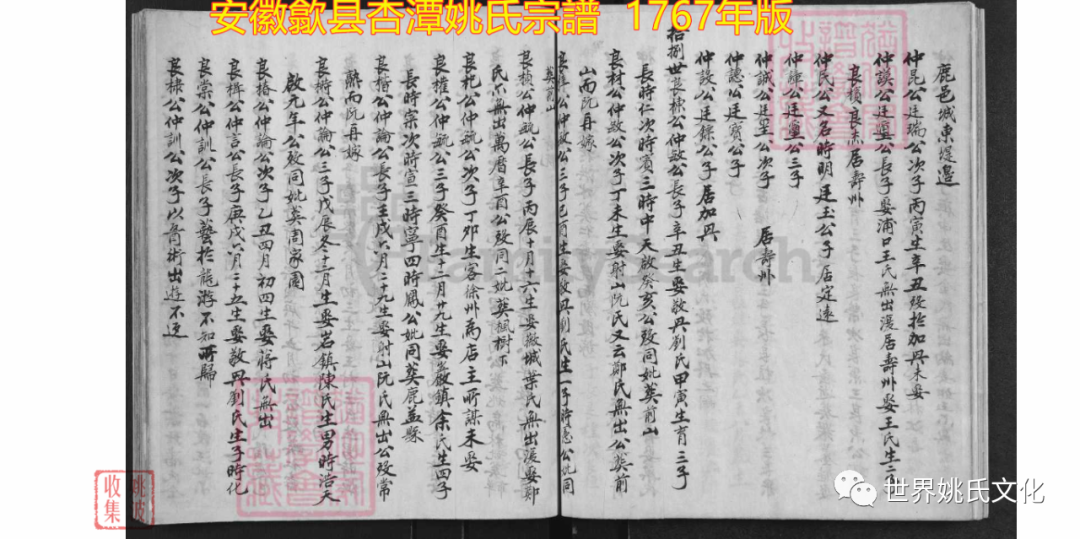 安徽歙县杏潭姚氏宗譜 1767年版
鹿邑城東堤邉
仲昆公廷瑞公次子丙寅生辛丑殁於加丹未娶
仲談公廷璽公長子娶浦口王氏無出後居壽州娶王氏生二子
良積 良志居壽州
仲民公又名時明廷玉公子居定遠
仲雍公廷璽公三子
仲誠公廷璽公次子 居壽州
仲讓公廷賓公子
仲設公廷錄公子居加丹
拾捌世良棟公仲啟公長子辛丑生娶敬興劉氏甲寅生育三子
長時仁次時賓三時中天啟癸亥公殁同妣葬前山
良材公仲啟公次子丁未生娶射山阮氏又云鄭氏無出公葬前
山而阮再嫁
公仲啟公三子己酉生娶敬興劉氏生一子時憲公妣同
葬前山
良楨公仲毓公長子丙辰十月十六生娶徽城葉氏無出後娶鄭
氏亦無出萬曆辛酉公殁同二妣葬楓樹下
良札公仲毓公次子丁卯生客徐州為店主所謀未娶
良權公仲毓公三子癸酉生十二月廿九生娶嚴鎮余氏生四子
長時宗次時宣三時寧四時鳳公妣同葬鹿益縣
良楷公仲論公長子壬戌六月二十九生娶射山阮氏無出公殁常
熟而阮再嫁
良樹公仲論公三子戊辰冬十二月生娶岩鎮陳氏生男時浩天
啟元年公殁同妣葬周家園
良椿公仲論公次子乙丑四月初四生娶蔣氏無出
良楫公仲言公長子庚戌六月二十五生娶敬興劉氏生子時化
良棠公仲訓公長子藝於龍游不知所歸
良棣公仲訓公次子以醫術出遊不返
FamilySearch
姚波
收集
世界姚氏文化